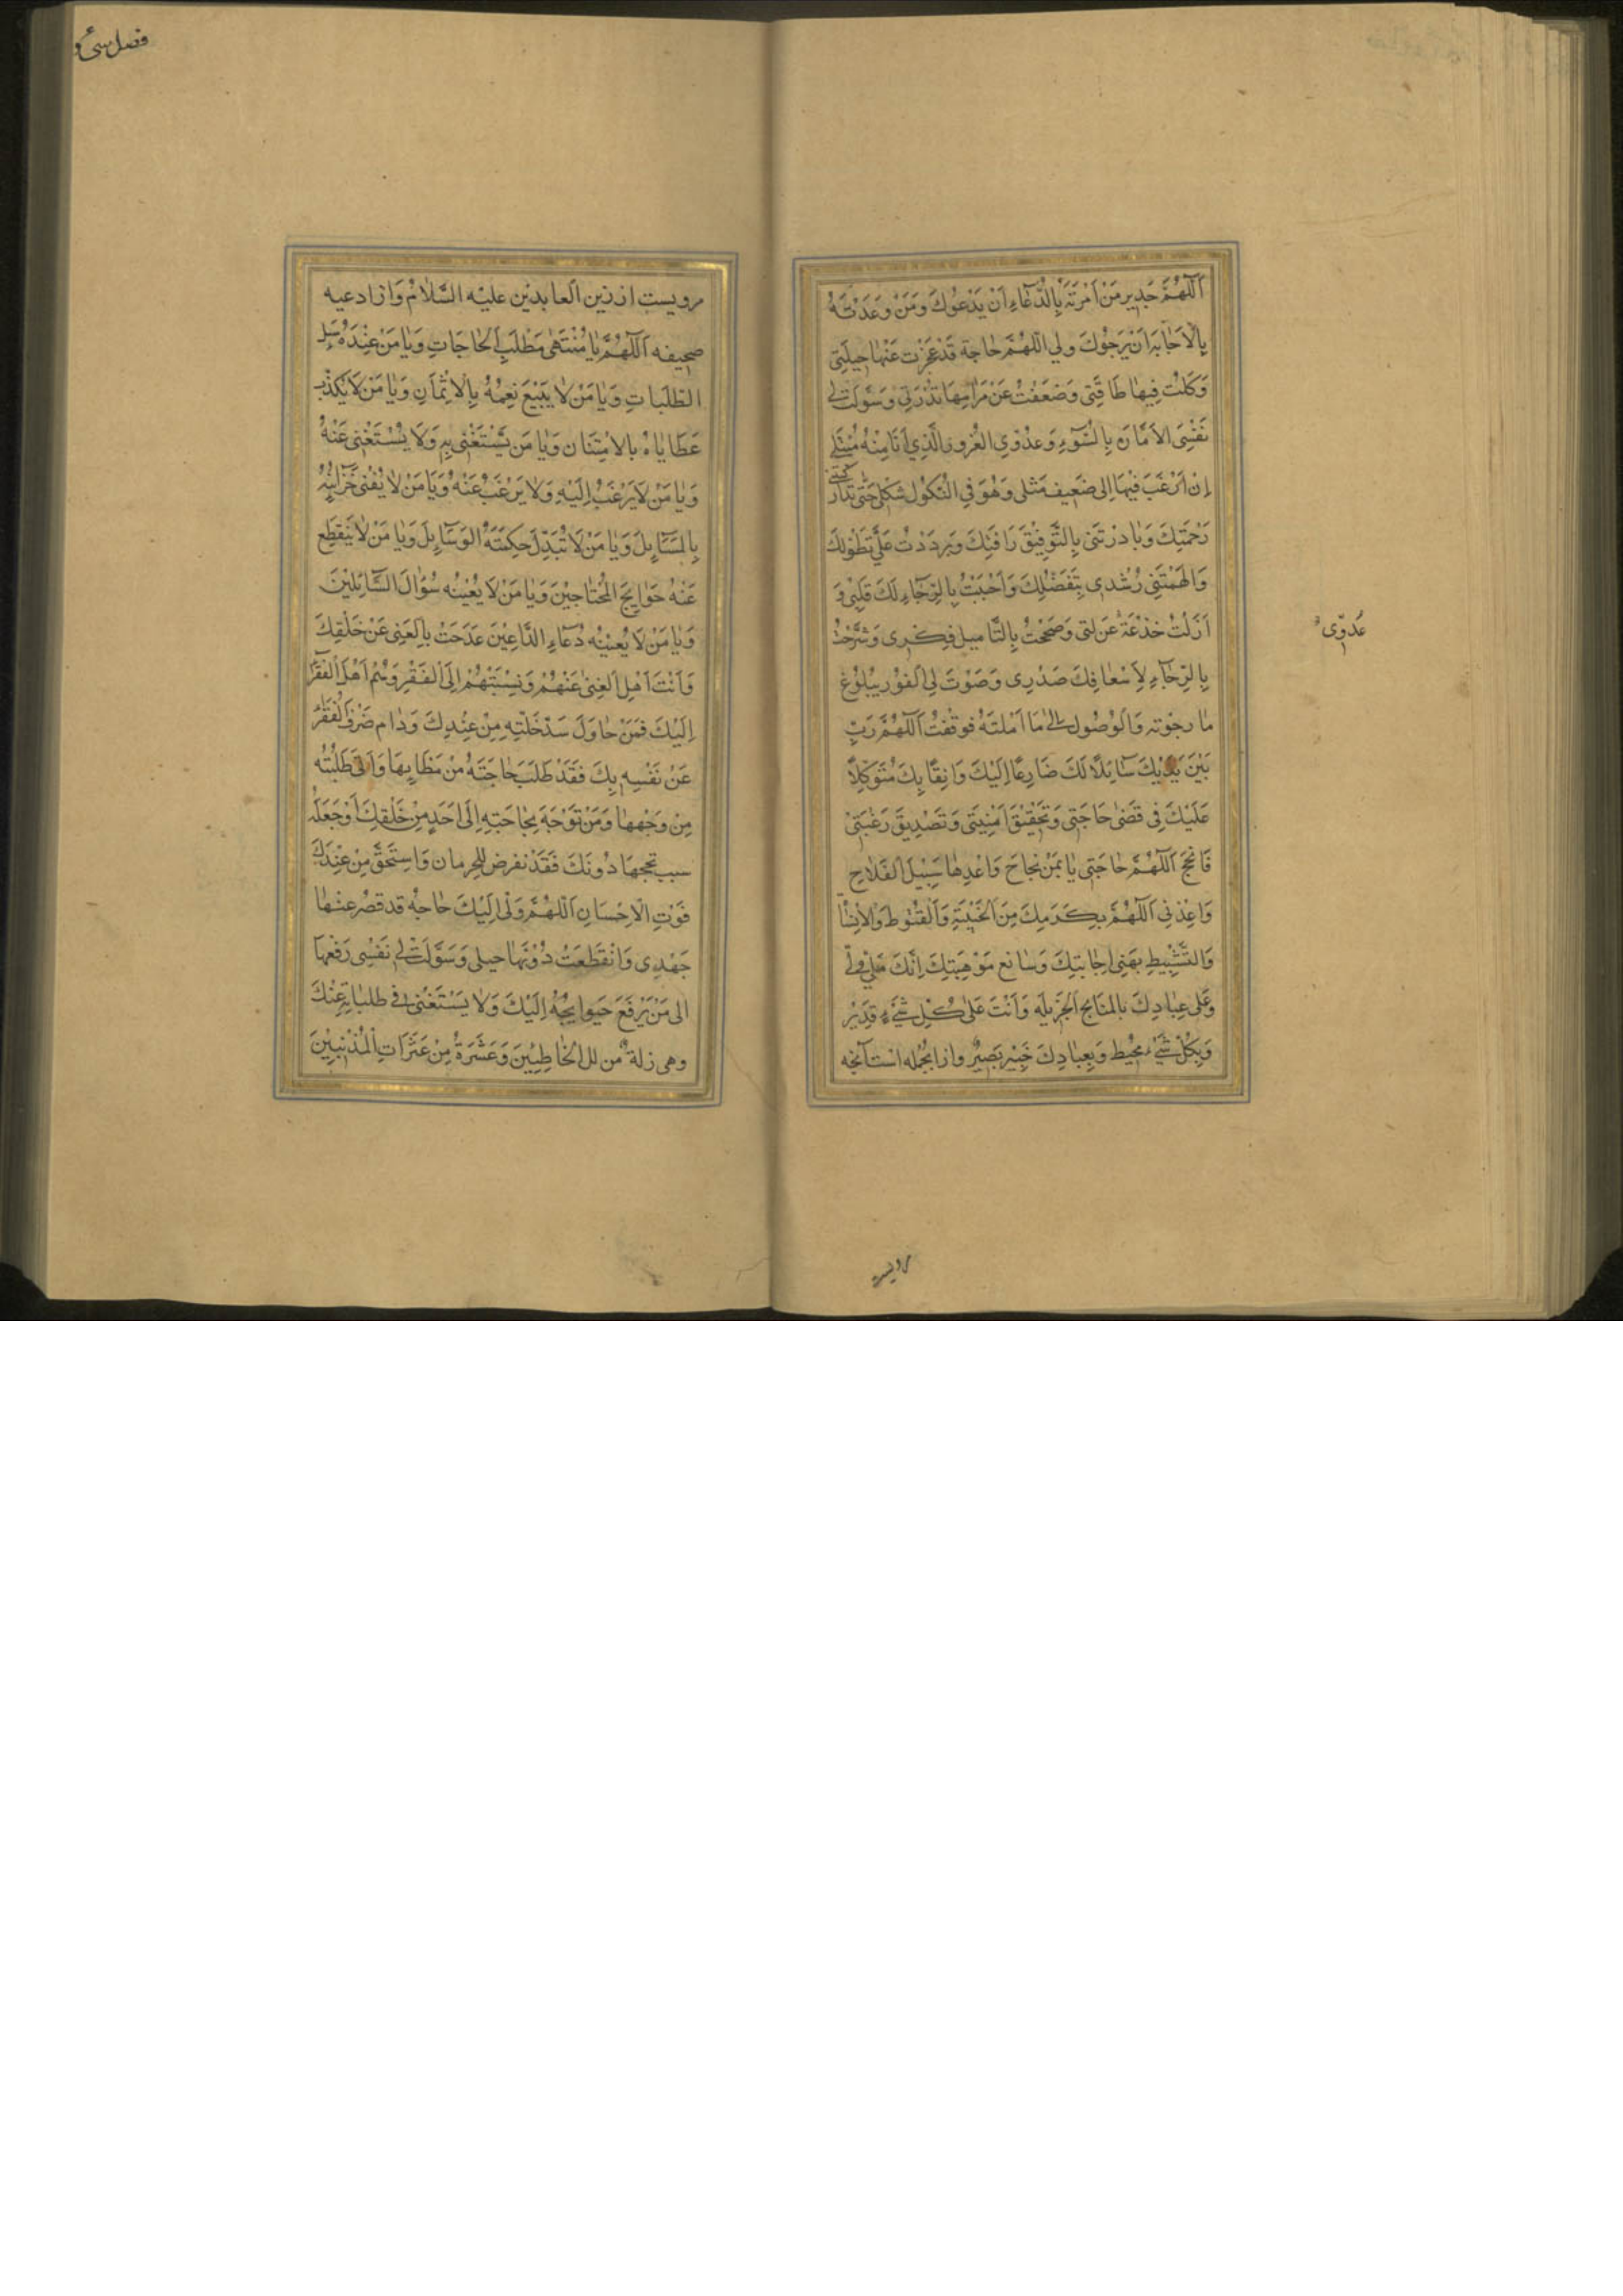 اَللّهُمَّ جَدِیر مَنْ اَمَرْتَهُ بِالدُّعَاءِ اَنْ یَدْعُوكَ وَمَنْ وَعَدْتَهُ
بِالْاَجَابَهِ اَنْ یَرْجُوْكَ ولی اللّهُمَّ حَاجَة قَدْ عَجَزَت عَنْهَا حِیلَتِی
وَكَلَّتْ فِیهَا طَاقَتِی وَضَعُفَتْ عَنْ مَرَامِهَا قُدْرَتِی وَسَوَّلَتْ لِی
نَفْسِیَ الاَمَّارَة بِالسُّوٓءِ وَعَدُوّی الغُرورِ الَّذِی اَنَا مِنْهُ مُبْتَلی
اِنْ اَرْغَبَ فِیْهَا اِلی ضَعِیفٍ مَثلی وَهُوَ فِی النُّكُول شَكلی حَتّی تَدَارَكَتنی
رَحْمَتِكَ وَبَادَرْتَنی بِالتَّوفِیْق رَافَتِكَ وَرَدَدْتَ عَلَیَّ تَطَوُّلِكَ
وَالْهَمْتَنِی رُشْدی بِتَفَضُّلِكَ وَاَحْیَیْتُ بِالرِّجَاءِ لَكَ قَلْبِی وَ
اَزَلْتُ خُدْعَةَ عَن لتی وَصَححْتُ بِالتَّامیل فِكْری وَشَرَحْتُ
بِالرِّجَآءِ لِاَسْعَافِكَ صَدْرِی وَصَوَّرتَ لِی اَلفَوْر بِبُلُوْغِ
مَا رجَوْته وَالوُصُول الی مَا اَمَلتَهُ فوقَفْتُ اَللّهُمَّ رَبِّ
بَیْنَ یَدَیْكَ سَآئِلًا لَكَ ضَارِعًا اِلَیْكَ وَاثِقًا بِكَ مُتَوَكِّلًا
عَلَیْكَ فِی قَضَٰی حَاجَتِی وَتَحْقِیْقَ اُمْنِیَتِی وَتَصْدِیقَ رَغْبَتِیْ
فَانْجَحْ اَللّهُمَّ حَاجَتِی یَا بِمَنْ نَجَاح وَاهْدِهَا سَبِیْلَ الْفَلَاحِ
وَاعِذْنِی اَللّهُمَّ بِكَرَمِكَ مِنَ الْخَیْبَةِ وَالْقُنُوْطِ وَالْاَنَاةِ
وَالتَّثْبِیْطِ بِهَنِی اِجَابَتِكَ وَسَابِغ مَوْهَبَتِكَ اِنَّكَ مَلِیٌّ وَلِیّ
وَعَلی عِبَادِكَ بِالمَنَایِح الْجَزِیلَه وَاَنْتَ عَلَی كُلِّ شَیْءٍ قَدِیْر
وَبِكُلّ شَیْءٍ مُحِیْط وَبِعِبَادِكَ خَبِیْر بَصِیْر واز انجُمله است آنچه
عَدوّی
مرویست از زین العابدین علیْه السَّلَامْ وَاز ادعیه
صحیفه اَللّهُمَّ یَا مُنْتَهَی مَطْلَبِ الْحَاجَاتِ وَیَا مَنْ عِنْدَهُ نَیل
الطّلَباتِ وَیَا مَنْ لَا یَبِیْعَ نِعَمُهُ بِالْاَثْمَانِ وَیَا مَنْ لَا یُكَدِّرُ
عَطَایَاهُ بِالامْتِنَان وَیَا مَن یُسْتَغْنٰی بِهِ وَلَا یُسْتَغْنٰی عَنْهُ
وَیَا مَنْ لَا یَرْغَبُ اِلَیْهِ وَلَا یَرْغَبُ عَنْهُ وَیَا مَنْ لَا یُفْنٰی خَزَآئِنُهُ
بِالْمَسَآئِلَ وَیَا مَنْ لَا تُبَدِّلُ حِكْمَتَهُ الوَسَآئِلَ وَیَا مَنْ لَا یَنْقَطِع
عَنْهُ حَوَایِجَ الْمُحْتَاجِیْنَ وَیَا مَنْ لَا یُعْیِیْهِ سُؤَالَ السَّآئِلِیْنَ
وَیَا مَنْ لَا یُعْنِیْهِ دُعَآءِ الدَّاعِیْنَ تَمَدَّحَتْ بِالْغِنٰی عَنْ خَلْقِكَ
وَاَنْتَ اَهْلَ الْغِنٰی عَنْهُمْ وَنِسْبَتَهُمْ اِلَی الْفَقْرِ وَهُمْ اَهْلَ الْفَقْر
اِلَیْكَ فَمَنْ حَاوَلَ سَدَّ خَلَّتِهِ مِنْ عِنْدِكَ وَدَام صَرْفَ الْفَقْر
عَنْ نَفْسِهِ بِكَ فَقَدْ طَلَبَ حَاجَتَهُ مِنْ مَظَانِهَا وَاَتَی طَلِبَتُه
مِنْ وَجْهِهَا وَمَنْ تَوَجَّهَ بِحَاجَتِهِ اِلَی اَحَدٍ مِنْ خَلْقِكَ اَوْ جَعَلَهُ
سبب نجحِهَا دُونَكَ فَقَدْ تعرض لِلْحِرمان وَاسْتَحَقَّ مِنْ عِنْدِكَ
فَوْتِ الْاِحْسَانِ اَللّهُمَّ وَلی اِلَیْكَ حَاجهُ قد قصُر عنها
جَهْدِی وَانْقَطَعَتْ دُوْنَهَا حیلی وَسَوَّلَتْ لِی نَفْسِی رَفْعَهَا
الی مَنْ یَرْفَعَ حَوایِجُهُ اِلَیْكَ وَلَا یَسْتَغْنٰی فی طلباتِه عَنْكَ
وهی زلة من زلل الْخَاطِیِیْنَ وَعَثْرَةٌ مِنْ عَثَرَاتِ الْمُذْنِبِیْنَ
مرویست